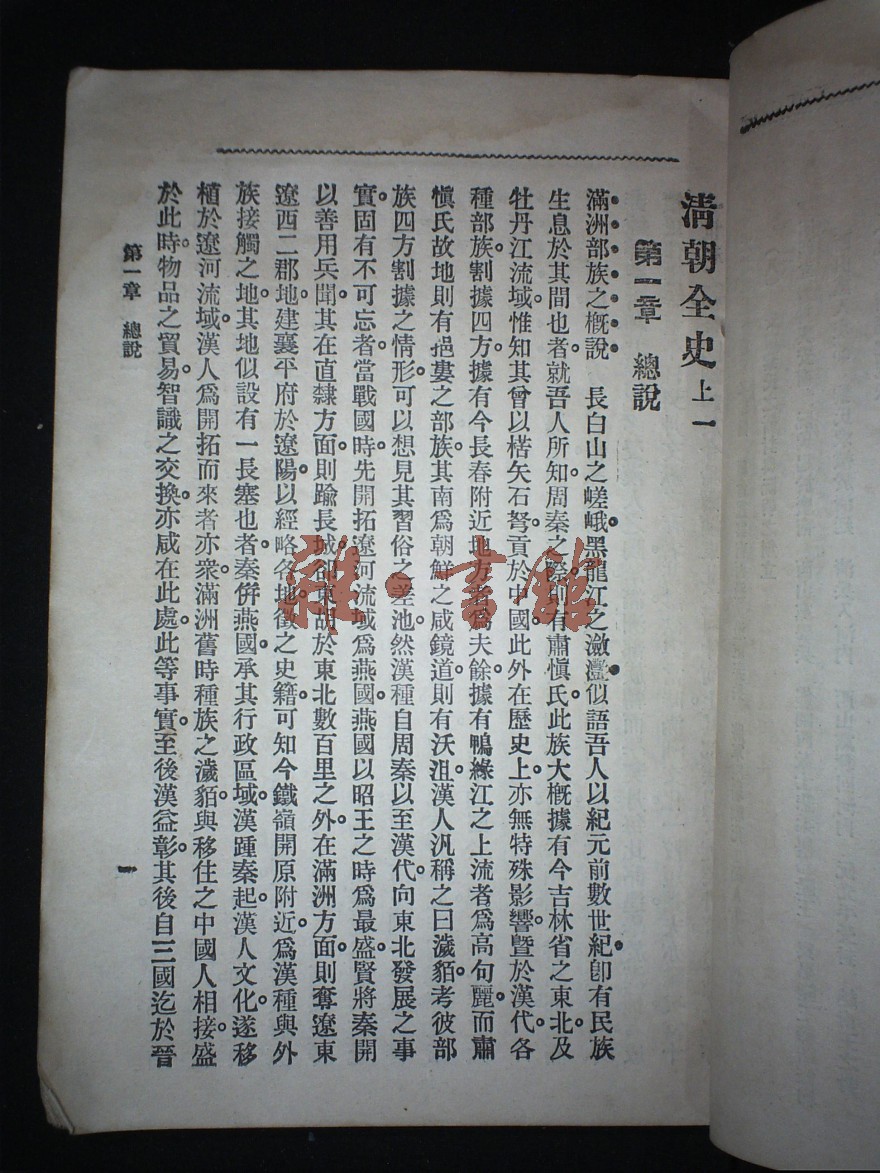 清朝全史 上一
第一章 總說
滿洲部族之概說 長白山之嵯峨。黑龍江之瀲灧。似語吾人以紀元前數世紀。卽有民族
生息於其間也者。就吾人所知。周秦之際。則有肅愼氏。此族大概據有今吉林省之東北。及
牡丹江流域。惟知其曾以楛矢石弩。貢於中國。此外在歷史上。亦無特殊影響。曁於漢代。各
種部族。割據四方。據有今長春附近地方者。爲夫餘。據有鴨綠江之上流者。爲高句麗。而肅
愼氏故地。則有挹婁之部族。其南爲朝鮮之咸鏡道。則有沃沮。漢人汎稱之曰濊貊。考彼部
族四方割據之情形。可以想見其習俗之差池。然漢種自周秦以至漢代。向東北發展之事
實。固有不可忘者。當戰國時。先開拓遼河流域。爲燕國。燕國以昭王之時爲最盛。賢將秦開
以善用兵聞。其在直隸方面。則踰長城。卻東胡於東北數百里之外。在滿洲方面。則奪遼東
遼西二郡地。建襄平府於遼陽。以經略各地。徵之史籍。可知今鐵嶺開原附近。爲漢種與外
族接觸之地。其地似設有一長塞也者。秦倂燕國。承其行政區域。漢踵秦起。漢人文化。遂移
植於遼河流域。漢人爲開拓而來者亦衆。滿洲舊時種族之濊貊。與移住之中國人相接。盛
於此時。物品之貿易。智識之交換。亦咸在此處。此等事實。至後漢益彰。其後自三國迄於晉
第一章 總說
一
雜·書館